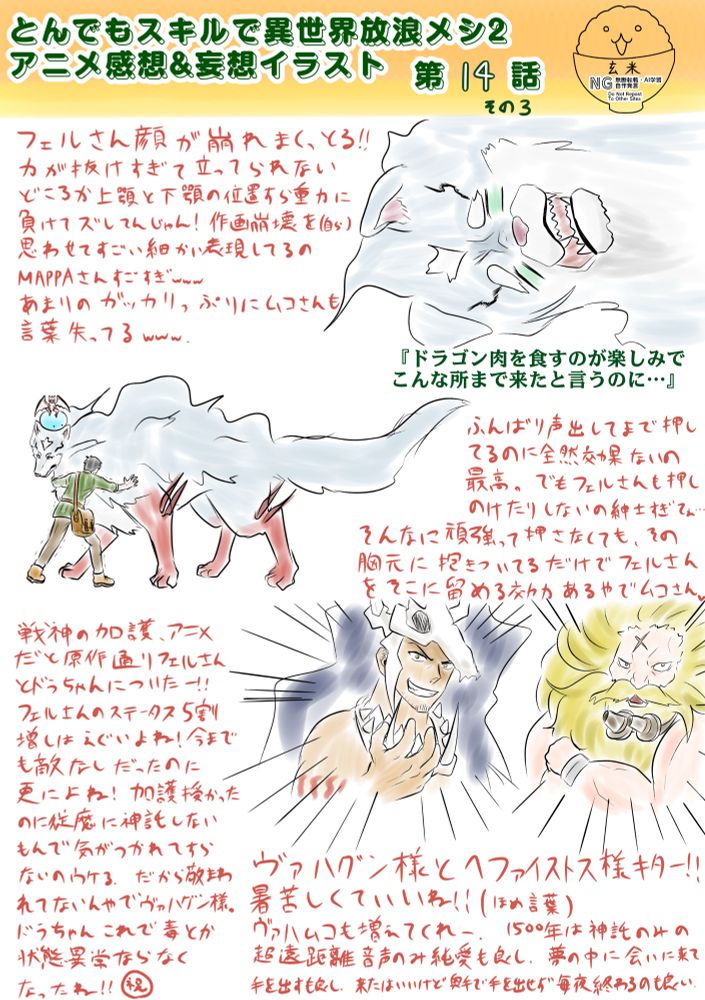 とんでもスキルで異世界放浪メシ2
アニメ感想&妄想イラスト 第14話
その3
玄米
NG 無断転載・AI学習
自作発言
Do Not Repost
To Other Sites
フェルさん顔が崩れまくっとる!!
力が抜けすぎて立ってられない
どころか上顎と下顎の位置すら重力に
負けてズレてんじゃん!作画崩壊を(自ら)
思わせてすごい細かい表現してるの
MAPPAさんすごすぎwww
あまりのガッカリっぷりにムコさんも
言葉失ってるwww.
『ドラゴン肉を食すのが楽しみで
こんな所まで来たと言うのに…』
ふんばり声出してまで押し
てるのに全然効果ないの
最高。でもフェルさんも押し
のけたりしないの紳士すぎてん…
そんなに頑張って押さなくても、その
胸元に抱きついてるだけでフェルさん
をそこに留める効力あるやでムコさん
戦神の加護、アニメ
だと原作通りフェルさん
とドラちゃんについたー!!
フェルさんのステータス5割
増しはえぐいよね!今まで
も敵なしだったのに
更によね!加護授かった
のに従魔に神託しない
もんで気がつかれてすら
ないのウケる.だから敬まわ
れてないんやでヴァハグン様。
ドラちゃんこれで毒とか
状態異常ならなく
なったね!!祝
ヴァハグン様とヘファイストス様キター!!
暑苦しくていいね!!(ほめ言葉)
ヴァハムコも増えてくれー. 1500年は神託のみの
超遠距離音声のみ純愛も良し.夢の中に会いに来て
手を出すも良し.来たはいいけど奥手で手を出せず毎夜終わるのも良い.